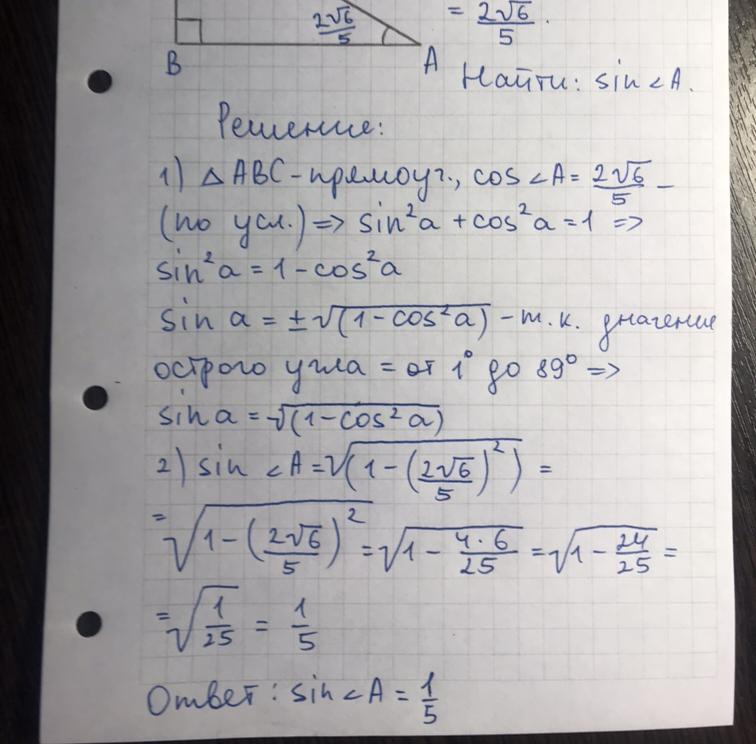 2√6/5
= 2√6/5.
B
A
Найти: sin∠A.
Решение:
1) △ABC-прямоуг., cos∠A = 2√6/5 -
(по усл.) => sin²a + cos²a = 1 =>
sin²a = 1 - cos²a
sin a = ±√(1-cos²a) - т.к. значение
острого угла = от 1° до 89° =>
sin a = √(1-cos²a)
2) sin∠A = √(1-(2√6/5)²) =
= √1-(2√6/5)² = √1 - 4·6/25 = √1 - 24/25 =
= √1/25 = 1/5
Ответ: sin∠A = 1/5